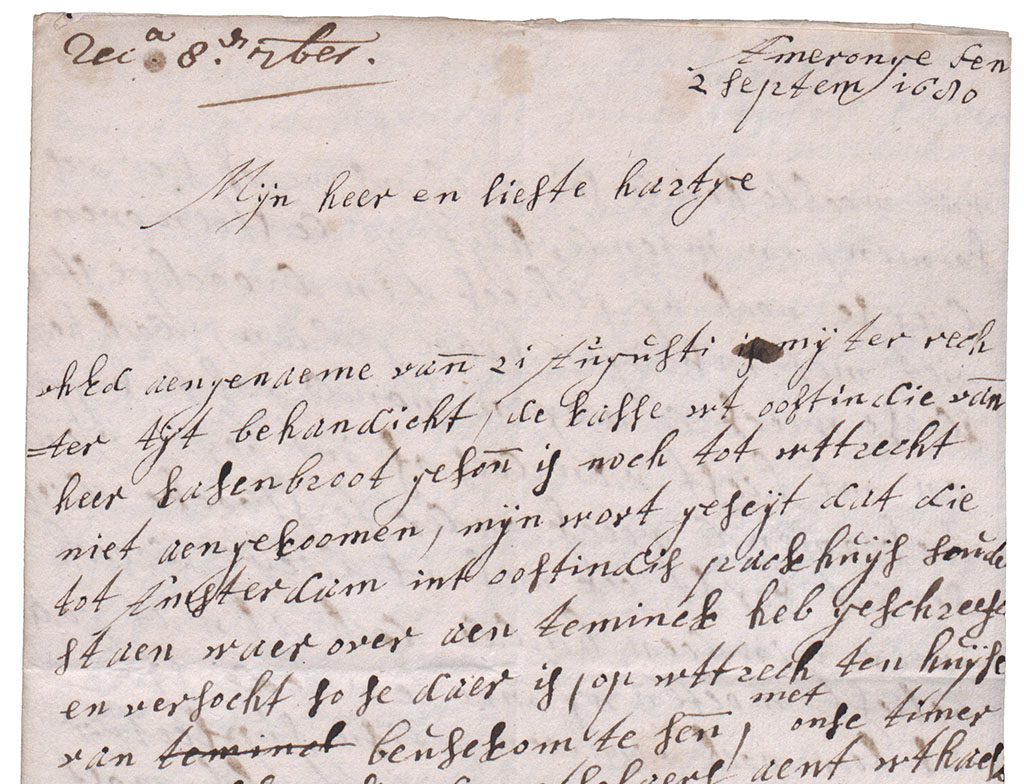 Rec.a 8.n 7ber.
Ameronge den
2 septem 1680
Mijn heer en liefste hartge
uhEd aengenaeme vañ 21 Augusti is mij ter rech
=ter tijt behandicht, de kasse wt oostindie van
heer kasenbroot gesoñ is noch tot wttrecht
niet aengekoomen, mijn wort geseijt dat die
tot Amsterdam int oostindis packhuijs soude
staen waer over aen teminck heb geschreefe
en versocht so se daer is, op wttrech ten huijse
van teminck beusekom te señ, met onse timer
aent wthack